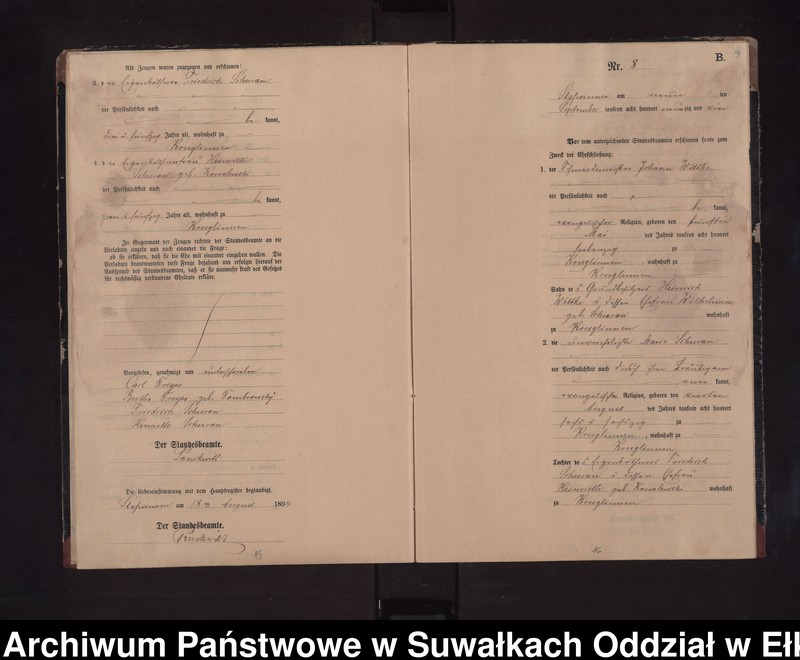 Als Zeugen waren zugezogen und erschienen:
3. der Eigenkäthner Friedrich Schwan
der Persönlichkeit nach
be kannt,
drei u fünfzig Jahre alt, wohnhaft zu
Kruglinnen
4. die Eigenkäthnerfrau Henriette
Schwan geb. Kowalewski
der Persönlichkeit nach
be kannt,
fünfzig Jahre alt, wohnhaft zu
Kruglinnen
In Gegenwart der Zeugen richtete der Standesbeamte an die
Verlobten einzeln und nach einander die Frage:
ob sie erklären, daß sie die Ehe mit einander eingehen wollen. Die
Verlobten beantworteten diese Frage bejahend und erfolgte hierauf der
Ausspruch des Standesbeamten, daß er sie nunmehr kraft des Gesetzes
für rechtmäßig verbundene Eheleute erkläre.
Vorgelesen, genehmigt und unterschrieben
Carl
Bertha geb.
Friedrich Schwan
Henriette Schwan
Der Standesbeamte.
Die Uebereinstimmung mit dem Hauptregister beglaubigt.
am 18 ten August 189
Der Standesbeamte.
15
B.
9
Nr. 8
am neun ten
September tausend acht hundert neunzig und vier
Vor dem unterzeichneten Standesbeamten erschienen heute zum
Zweck der Eheschließung:
1. der Schmiedemeister Johann Wittke
der Persönlichkeit nach
be kannt,
evangelischer Religion, geboren den fünften
Mai des Jahres tausend acht hundert
siebenzig zu
Kruglinnen, wohnhaft zu
Kruglinnen
Sohn des Grundbesitzers Heinrich
Wittke u dessen Ehefrau Wilhelmine
geb. Schwan wohnhaft
zu Kruglinnen
2. die unverehelichte Marie Schwan
der Persönlichkeit nach durch den Bräutigam
kannt,
evangelischer Religion, geboren den vierten
August des Jahres tausend acht hundert
sechs u sechszig zu
Kruglinnen, wohnhaft zu
Kruglinnen
Tochter des Eigenkäthners Friedrich
Schwan u dessen Ehefrau
Henriette geb. Kowalewski wohnhaft
zu Kruglinnen
16
Archiwum Państwowe w Suwałkach Oddział w Ełk